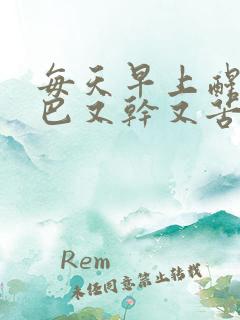 每天早上醒
巴又幹又苦
Rem
未经同意禁止转载